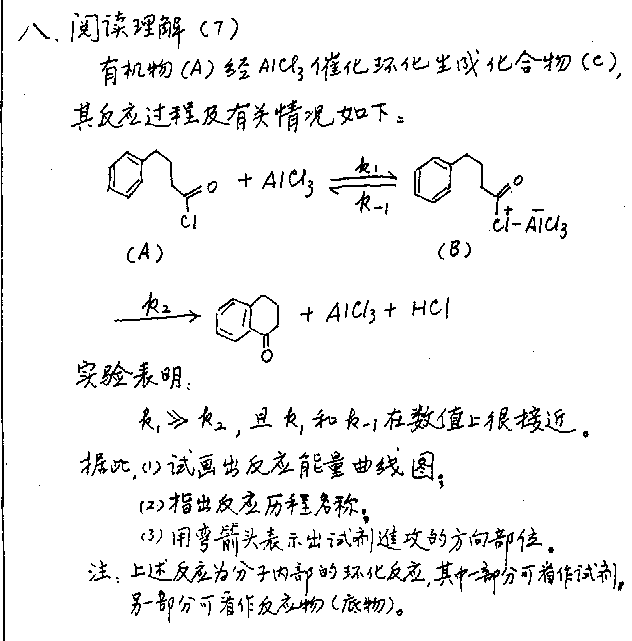 八、阅读理解（7）
有机物（A）经AlCl₃催化环化生成化合物（C），
其反应过程及有关情况如下：
O + AlCl₃ k₁ k₋₁ O
Cl Cl⁺–A̅lCl₃
(A) (B)
k₂ + AlCl₃ + HCl
O
实验表明：
k₁ ≫ k₂，且k₁和k₋₁在数值上很接近。
据此，(1)试画出反应能量曲线图；
(2)指出反应历程名称；
(3)用弯箭头表示出试剂进攻的方向部位。
注：上述反应为分子内部的环化反应，其中一部分可看作试剂，
另一部分可看作反应物（底物）。